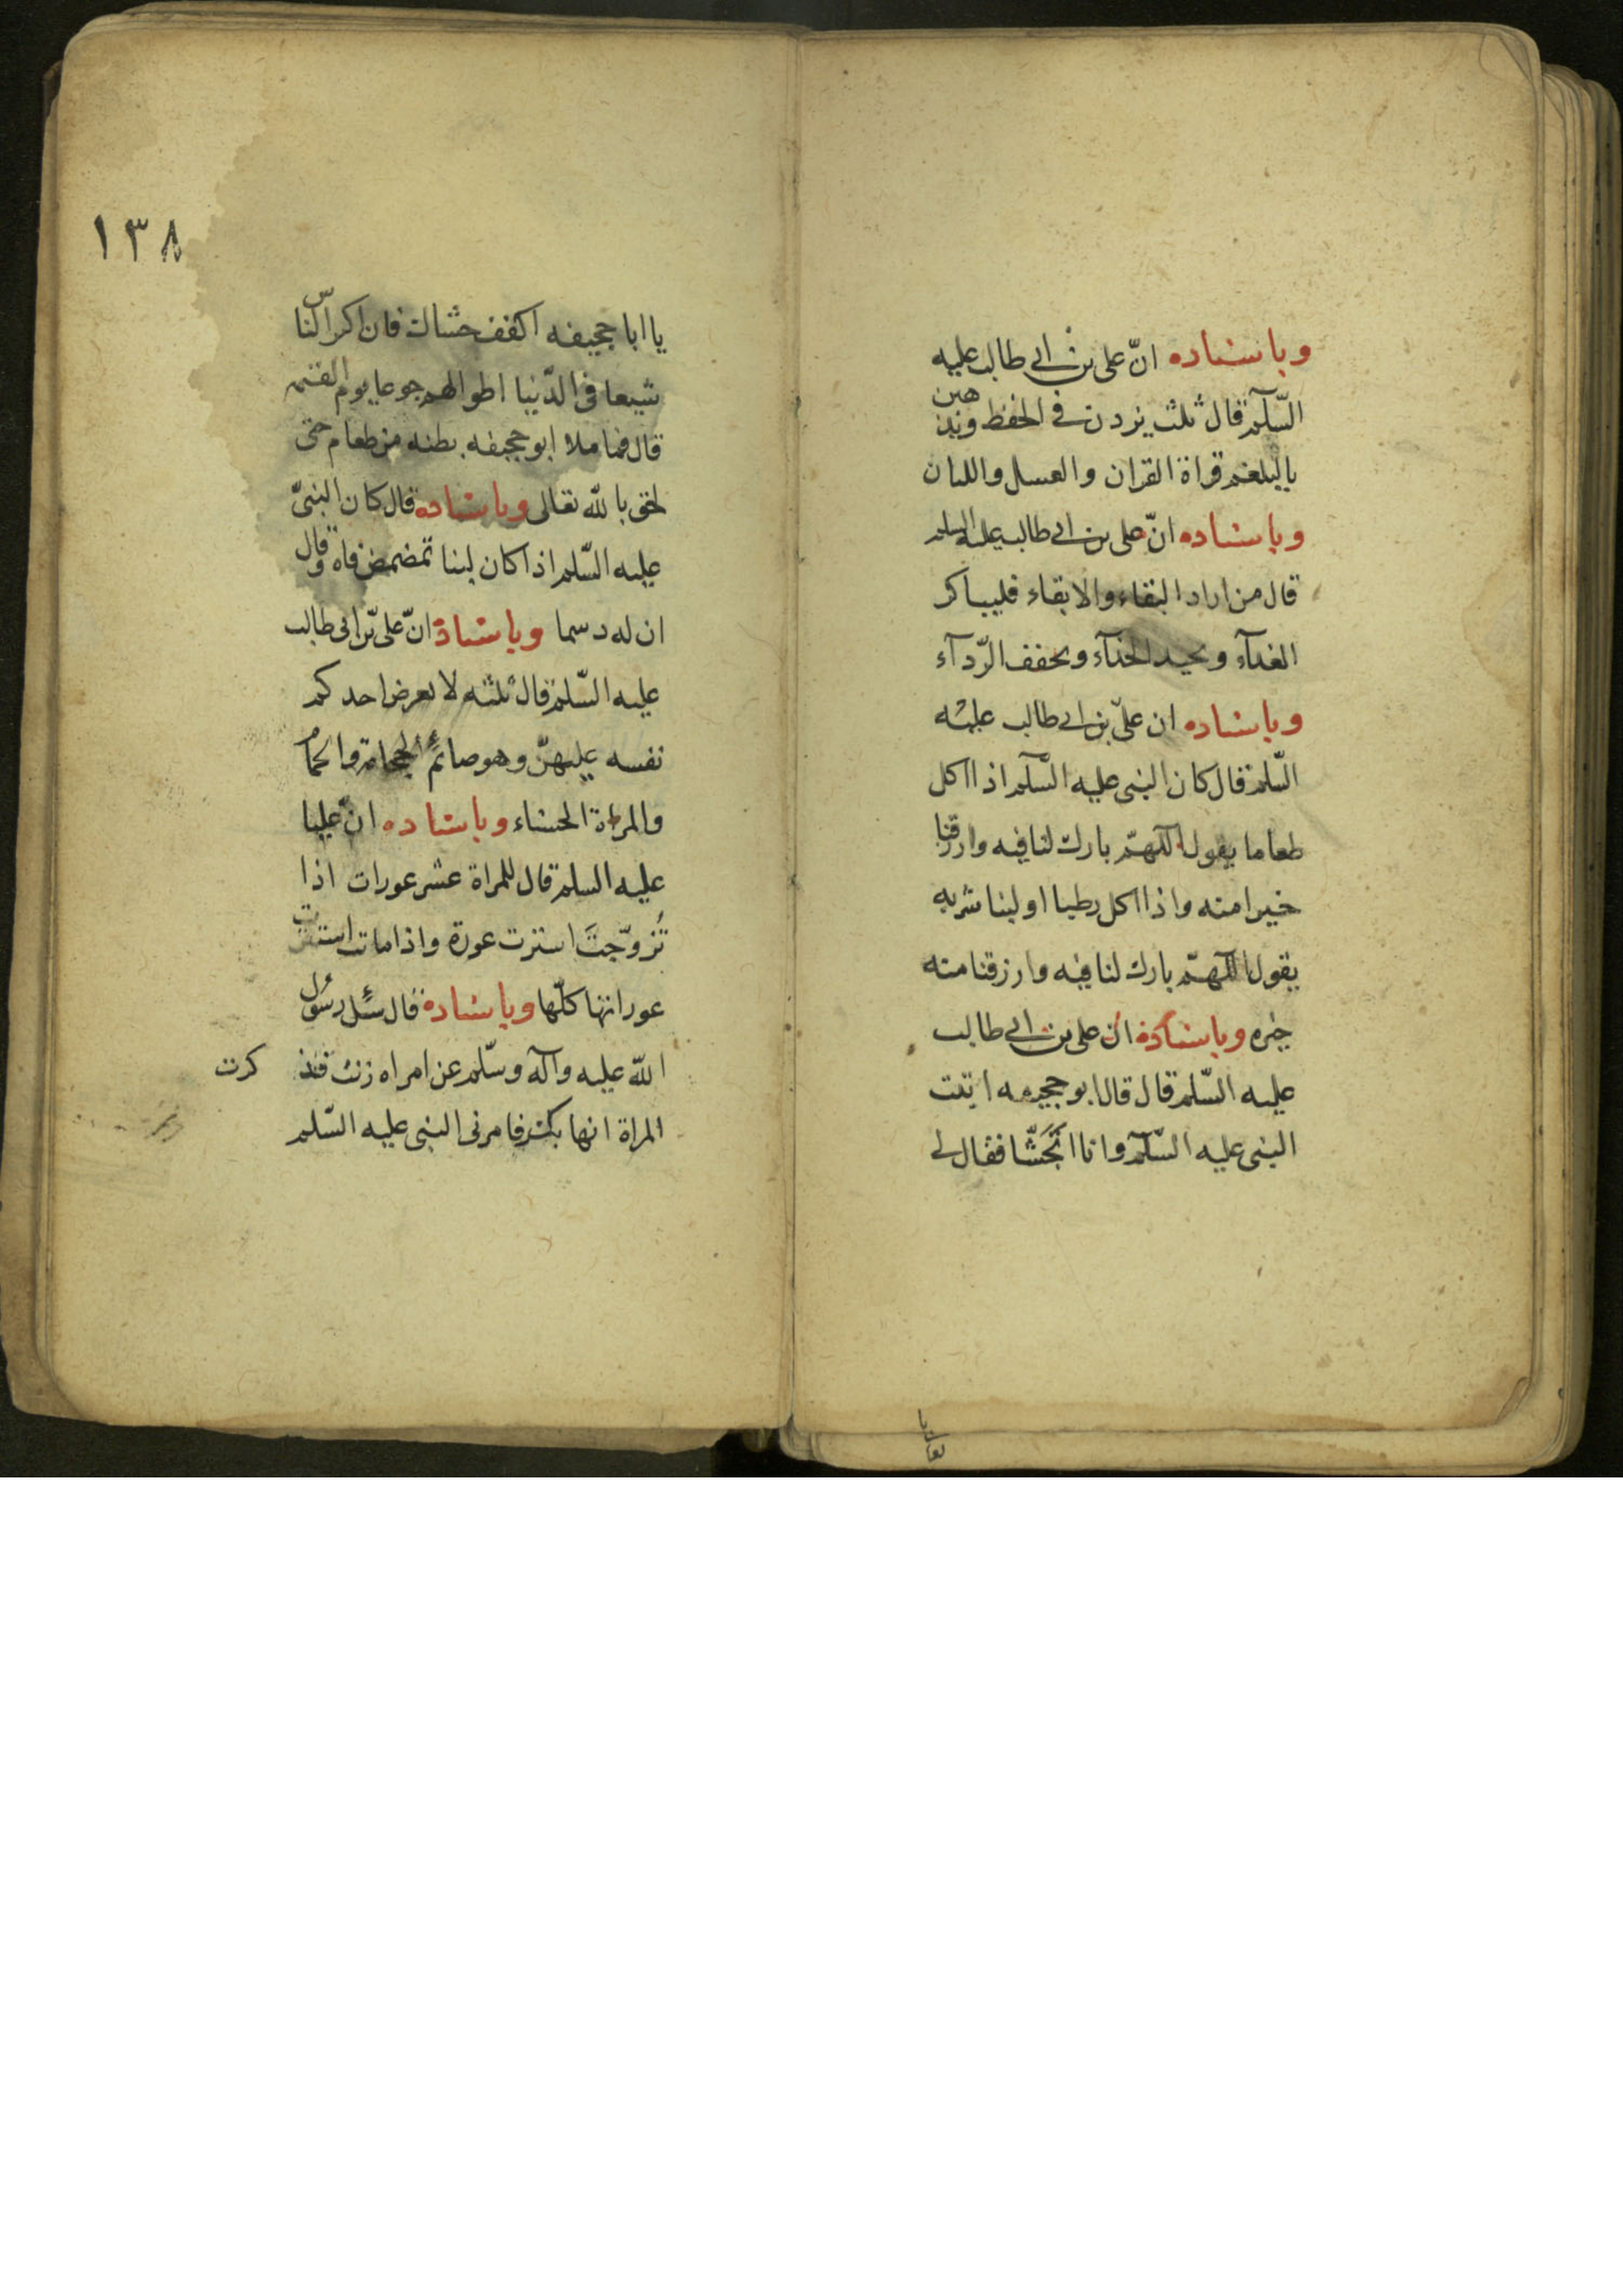 وباسناده انّ على بن ابى طالب عليه
السّلم قال ثلث يزدن فى الحفظ ويذهبن
بالبلغم قراة القران والعسل واللبان
وباسناده انّ على بن ابى طالب عليه السلم
قال من اراد البقاء والابقاء فليباكر
الغدآء ويجيد الحذآء ويخفف الرّدآء
وباسناده ان علىّ بن ابى طالب عليه
السّلم قال كان النبى عليه السّلم اذا اكل
طعاما يقول اللهمّ بارك لنا فيه وارزقنا
خيرا منه واذا اكل رطبا او لبنا شربه
يقول اللهمّ بارك لنا فيه وارزقنا منه
خيره وباسناده ان على بن ابى طالب
عليه السّلم قال قال ابو جحيفه اتيت
النبى عليه السّلم وانا اتجَشّا فقال لى
١٣٨
يا ابا جحيفه اكفف جشاك فان اكثر النّاس
شبعا فى الدّنيا اطولهم جوعا يوم القيمه
قال فما ملا ابو جحيفه بطنه من طعام حتى
لحق بالله تعالى وباسناده قال كان النبىّ
عليه السّلم اذا كان لبنا تمضمض فاه وقال
ان له دسما وباسناده انّ على بن ابى طالب
عليه السّلم قال ثلثه لا يعرض احدكم
نفسه عليهنّ وهو صائم الحجامة والحمام
والمراة الحسناء وباسناده انّ عليا
عليه السلم قال للمراة عشر عورات اذا
تُزوّجتَ استترت عورة واذا ماتت استترت
عوراتها كلّها وباسناده قال سئل رسول
الله عليه وآله وسلّم عن امراه زنت فذكرت
المراة انها بكر فامرنى النبى عليه السّلم